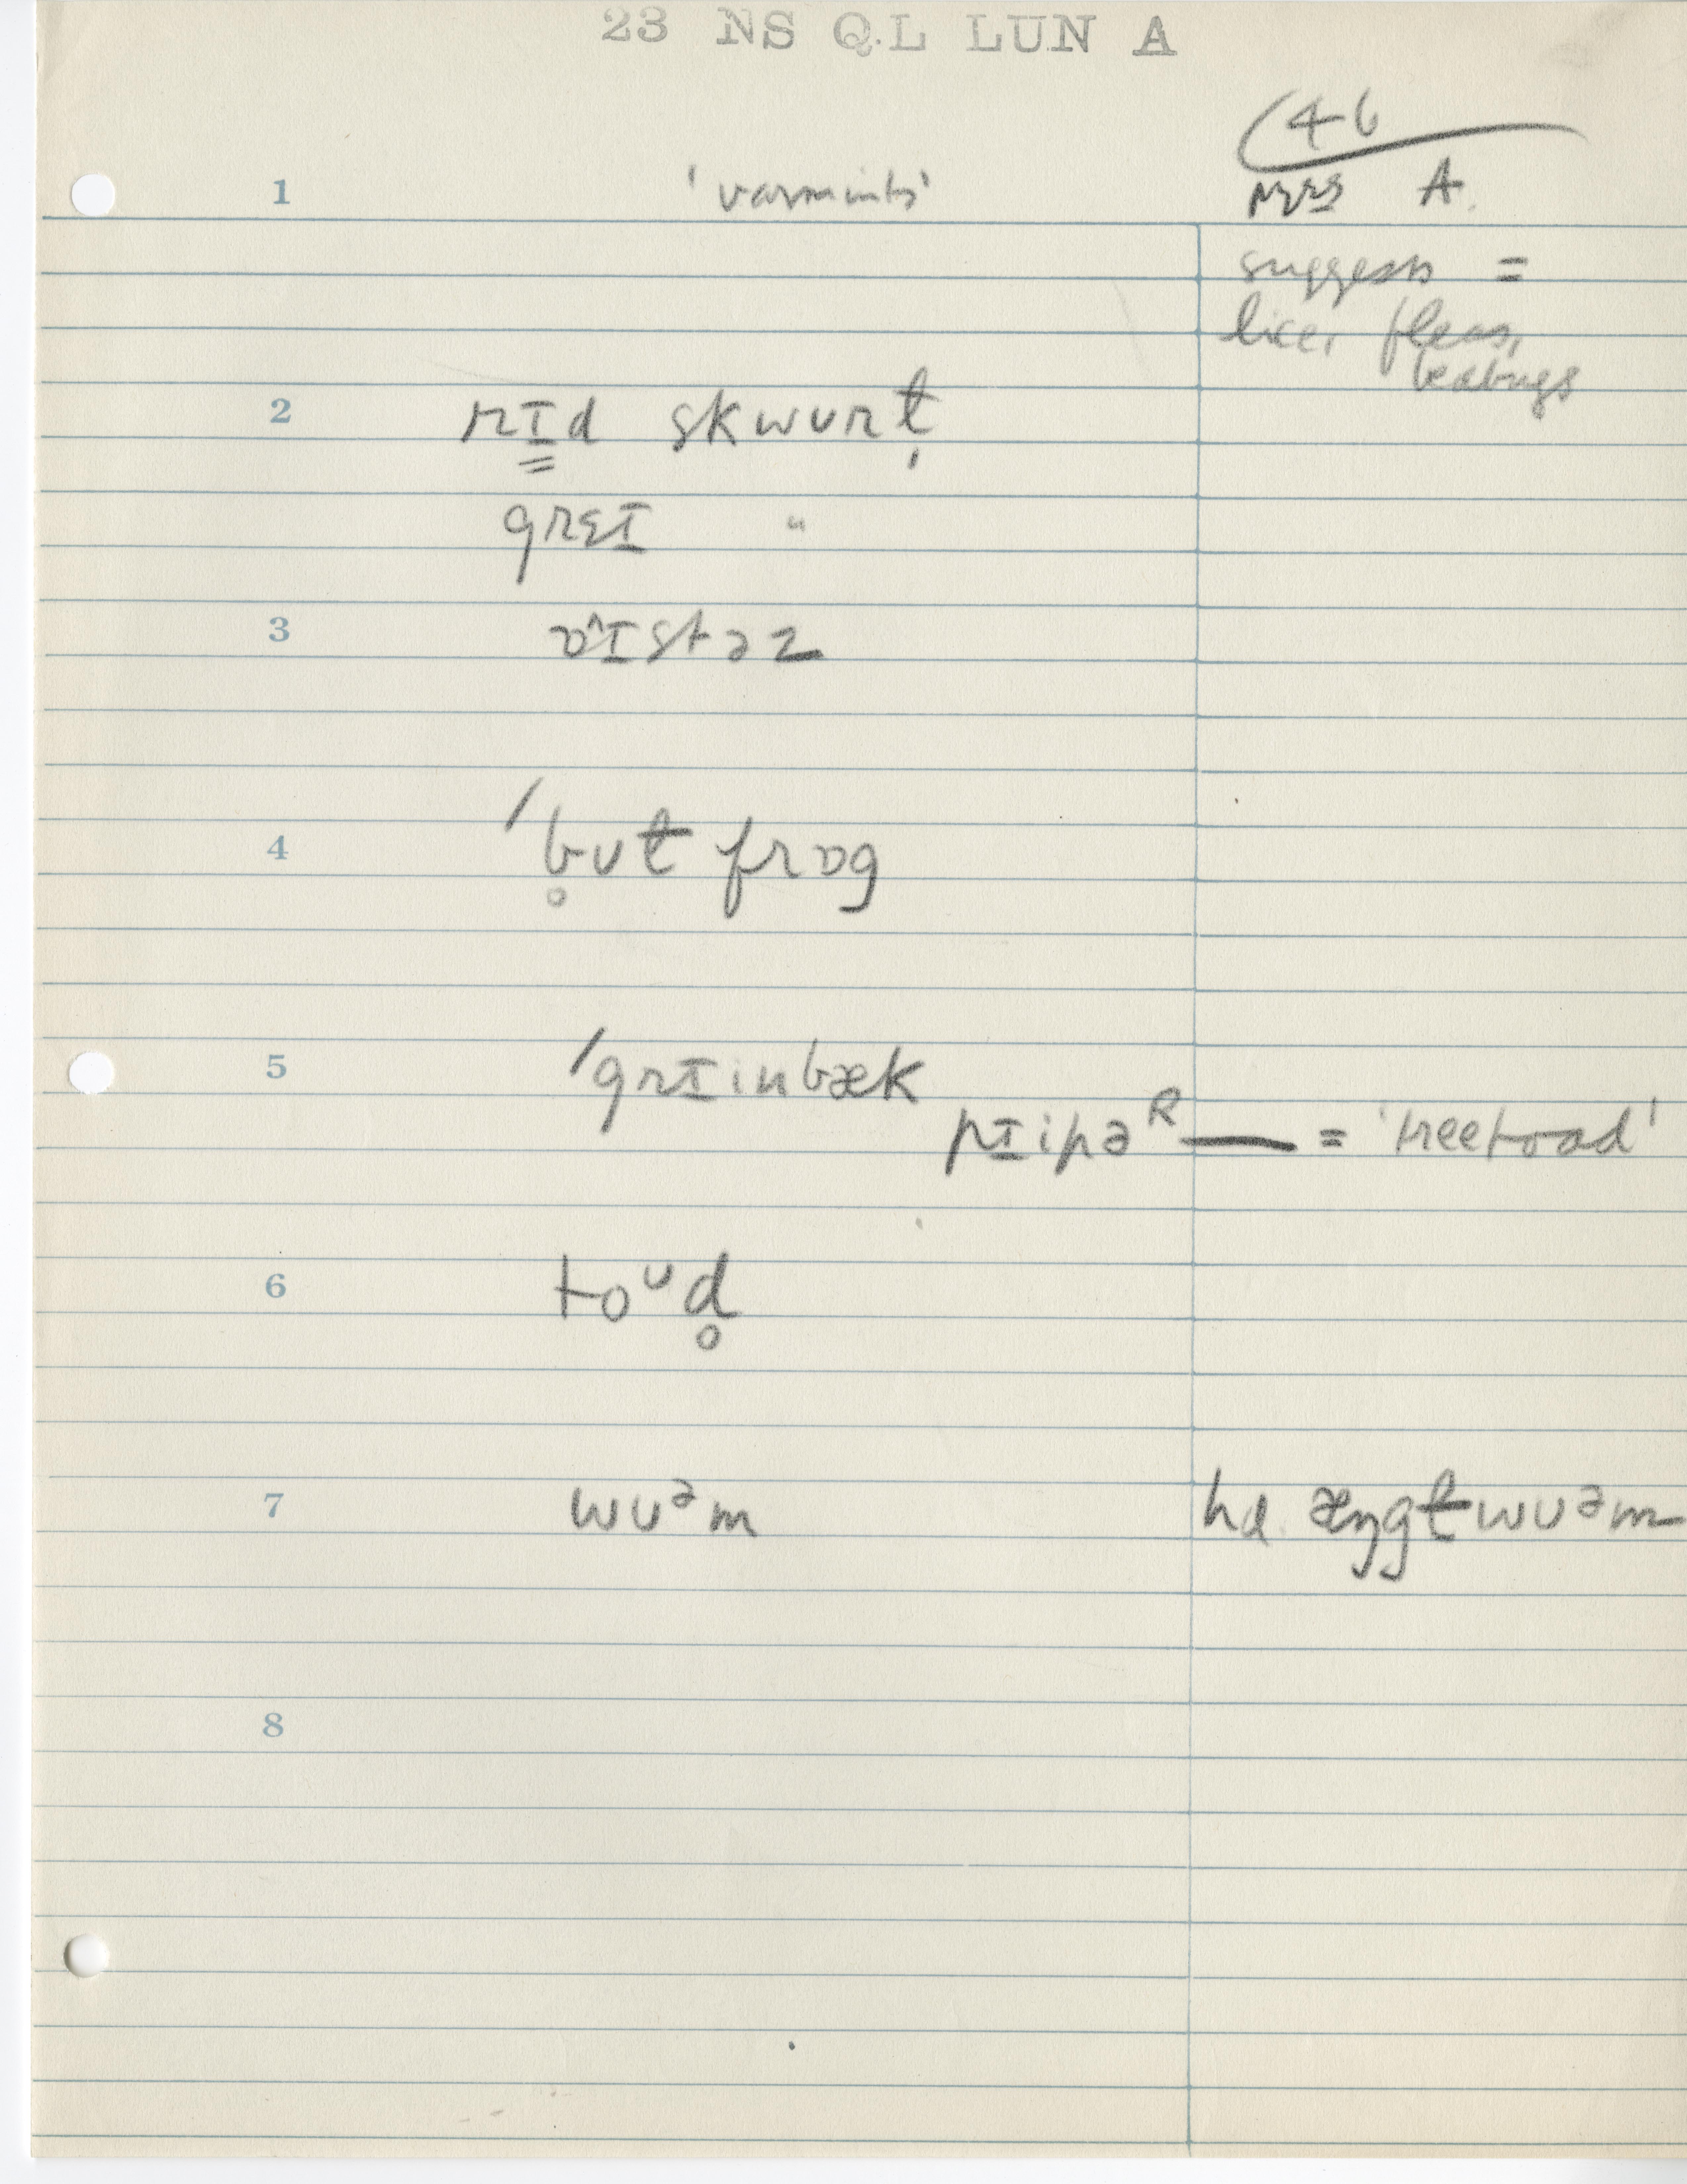 23 NS QL LUN A
46
1 'varmints' Mrs A.
suggests =
lice, fleas,
bedbugs
2 rɪ̳d skwurɫ̩
grɛɪ "
3 ɒ^ɪstəz
4 ˈb̥ʊɫ frɒg
5 ˈgrɪinbæk
pɪipəᴿ — = 'treetoad'
6 toᶷd̥
7 wʊᵊm hd. æŋgɫwʊᵊm
8